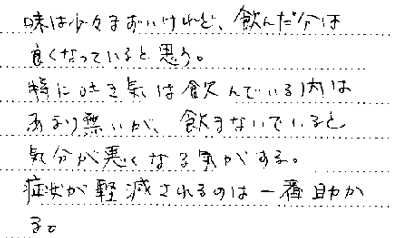 味は少々まずいけれど、飲んだ分は
良くなっていると思う。
特に吐き気は飲んでいる内は
あまり無いが、飲まないでいると
気分が悪くなる気がする。
症状が軽減されるのは一番助か
る。